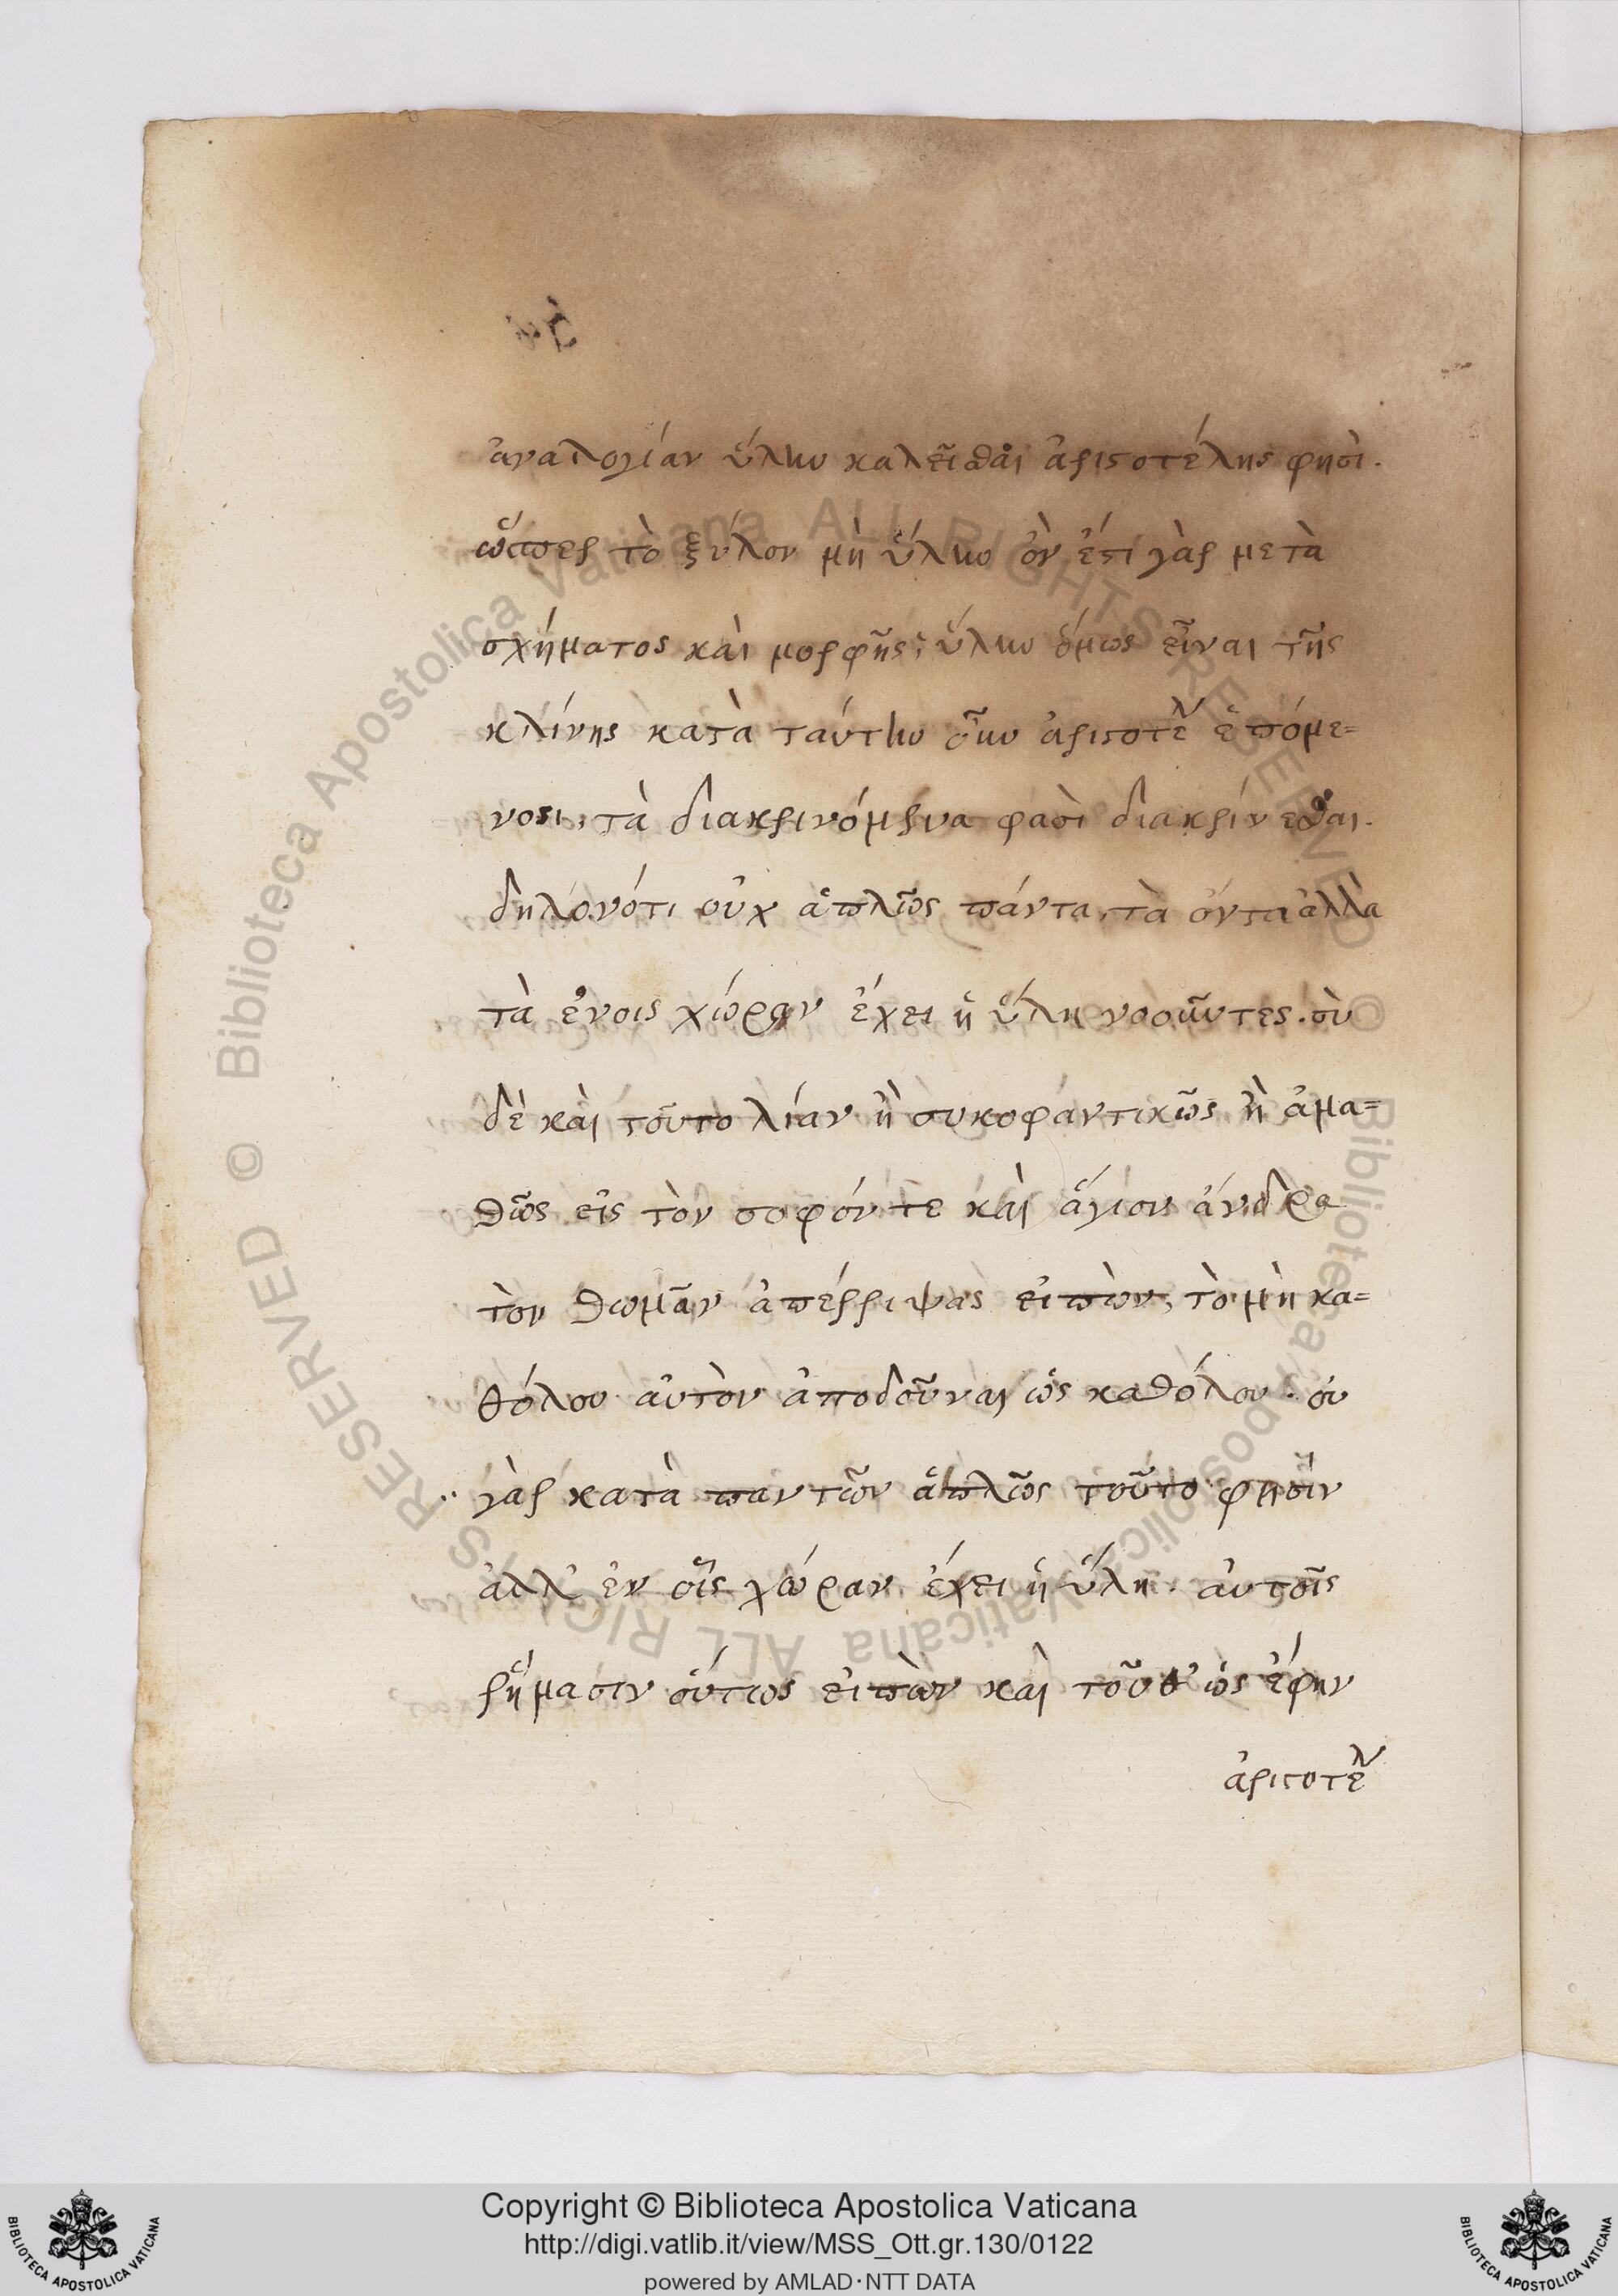 ἀναλογίαν ὕλην καλεῖσθαι ἀριστοτέλης φησί.
ὥσπερ τὸ ξύλον μὴ ὕλην ὂν ἔτι γὰρ μετὰ
σχήματος καὶ μορφῆς, ὕλην ὅμως εἶναι τῆς
κλίνης κατὰ ταύτην οὖν ἀριστοτέλ ἑπόμε=
νοσι, τὰ διακρινόμενα φασὶ διακρίνεσθαι.
δηλονότι οὐχ ἁπλῶς πάντα, τὰ ὄντα ἀλλὰ
τὰ ἐνοις χώραν ἔχει ἡ ὕλη νοοῦντες. σὺ
δὲ καὶ τοῦτο λίαν ἢ συκοφαντικῶς ἢ ἀμα=
θῶς εἰς τὸν σοφόν τε καὶ ἅγιον ἄνδρα
τὸν θωμᾶν ἀπέρριψας εἰπὼν, τὸ μὴ κα=
θόλου αὐτὸν ἀποδοῦναι ὡς καθόλου. οὐ
γὰρ κατὰ παντῶν ἁπλῶς τοῦτο φησὶν
ἀλλ' ἐν οἷς χώραν ἔχει ἡ ὕλη. αὐτοῖς
ῥήμασιν οὕτως εἰπὼν καὶ τοῦθ' ὡς ἔφην
ἀριστοτέλ
Copyright © Biblioteca Apostolica Vaticana
http://digi.vatlib.it/view/MSS_Ott.gr.130/0122
powered by AMLAD·NTT DATA
BIBLIOTECA APOSTOLICA VATICANA
BIBLIOTECA APOSTOLICA VATICANA
© Biblioteca Apostolica Vaticana ALL RIGHTS RESERVED
© Biblioteca Apostolica Vaticana ALL RIGHTS RESERVED